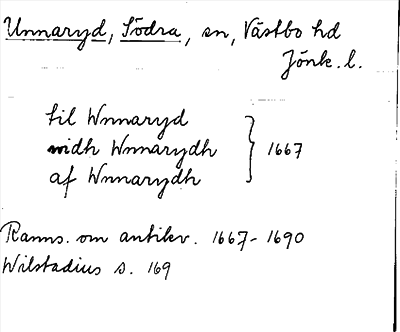 Unnaryd, Södra, sn, Västbo hd
Jönk. l.
til Wnnaryd
widh Wnnarydh
af Wnnarydh
} 1667
Ranns. om antikv. 1667-1690
Wilstadius s. 169